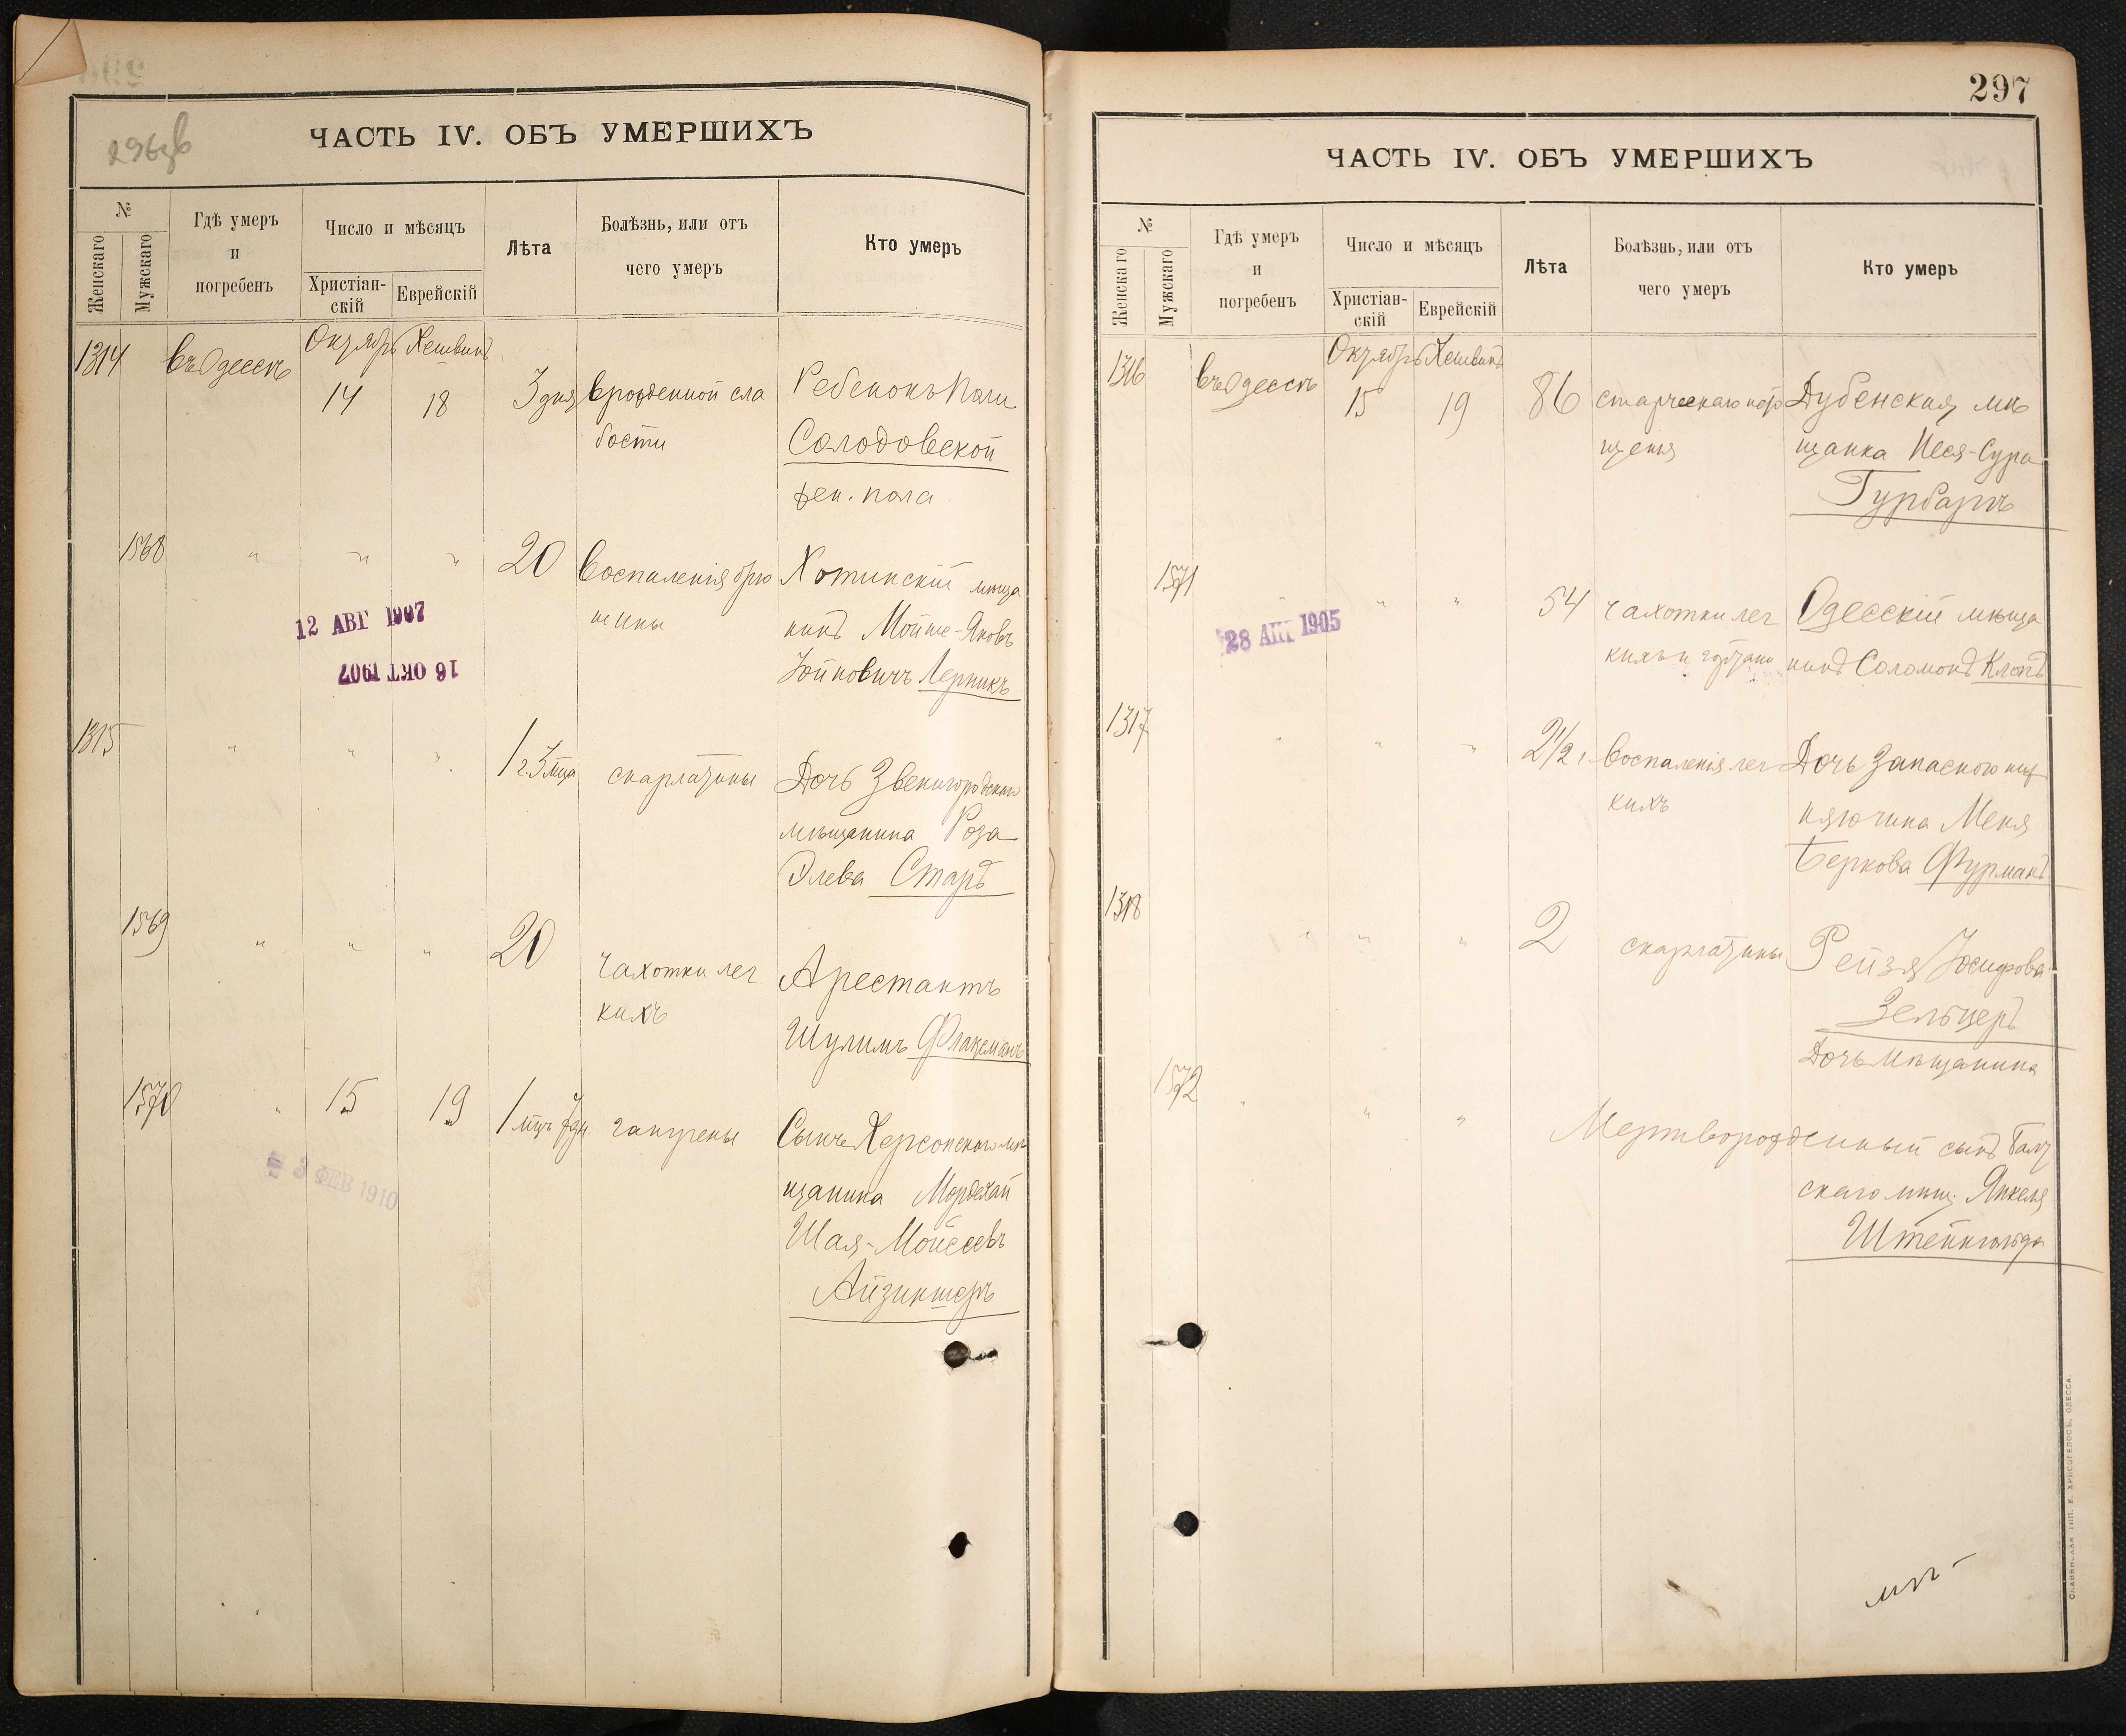 296об
ЧАСТЬ IV. ОБЪ УМЕРШИХЪ
№
Женскаго
Мужскаго
Гдѣ умеръ
и
погребенъ
Число и мѣсяцъ
Христіан-
скій
Еврейскій
Лѣта
Болѣзнь, или отъ
чего умеръ
Кто умеръ
Октябрь Хешванъ
1314 въ Одессѣ 14 18 3 дня врожденной сла
бости
Ребенокъ
Солодовской
жен. пола
1568 " " " 20 воспаленія брю
шины
Хотинскій мѣща
нинъ Мойше-Яковъ
Лерникъ
12 АВГ 1907
16 ОКТ 1907
1315 " " " 1 г. 3 мца скарлатины
Дочь Звенигородскаго
мѣщанина Роза
Элева Старъ
1569 " " " 20 чахотки лег
кихъ
Арестантъ
Шулимъ
1570 " 15 19 1 мцъ 7 дн. гангрены
Сынъ Херсонскаго мѣ
щанина Мордехай
Шая-Мойсеевъ
Айзиншеръ
3 ФЕВ 1910
297
ЧАСТЬ IV. ОБЪ УМЕРШИХЪ
№
Женскаго
Мужскаго
Гдѣ умеръ
и
погребенъ
Число и мѣсяцъ
Христіан-
скій
Еврейскій
Лѣта
Болѣзнь, или отъ
чего умеръ
Кто умеръ
Октябрь Хешванъ
1316 въ Одессѣ 15 19 86 старческаго
щенія
Дубенская мѣ
щанка Песя-Сура
Гурбаръ
1571 " " " 54 чахотки лег
кихъ и гортани
Одесскій мѣща
нинъ Соломонъ Клопъ
28 АПР 1905
1317 " " " 2 1/2 г воспаленія лег
кихъ
Дочь запаснаго
Меня
Беркова Фурманъ
1318 " " " 2 скарлатины
Рейзя Іосифова
Зельцеръ
Дочь мѣщанина
1572 " " " Мертворожденный сынъ Балт
скаго мѣщ. Янкеля
Штейнгольда
СЛАВЯНСКАЯ ТИП. Е. ХРИСОГЕЛОСЪ, ОДЕССА.